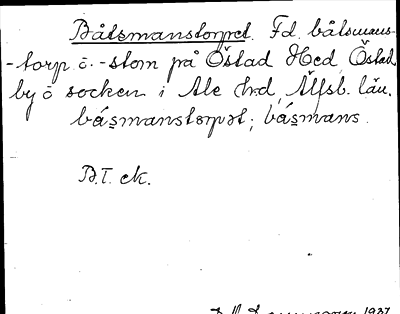 Båtsmanstorpet. Fd. båtsmans-
-torp o. -stom på Östad Hed, Östad
by o socken i Ale hrd, Älfsb. län.
båsmanstorpet; båsmans.
B.T. ek.
1937